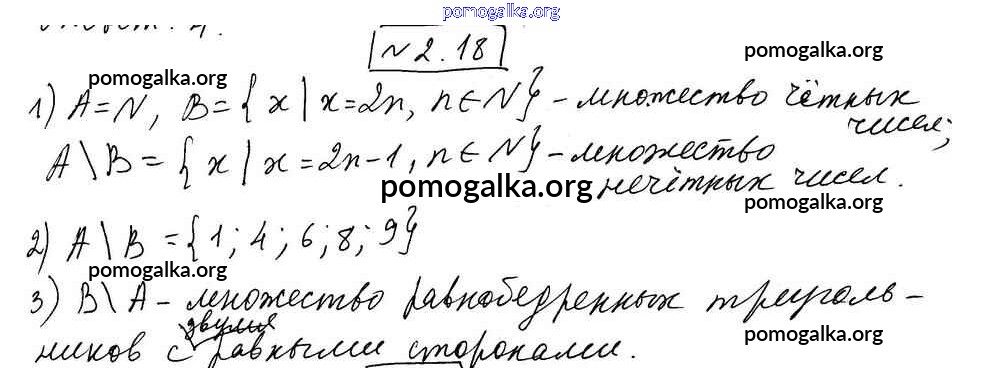 pomogalka.org
№2.18
pomogalka.org
pomogalka.org
1) A=N, B={x|x=2n, n∈N} - множество чётных
чисел;
A\B={x|x=2n-1, n∈N} - множество
нечётных чисел.
pomogalka.org
pomogalka.org
2) A\B={1; 4; 6; 8; 9}
pomogalka.org
3) B\A - множество равнобедренных треуголь-
двумя
ников с равными сторонами.
pomogalka.org